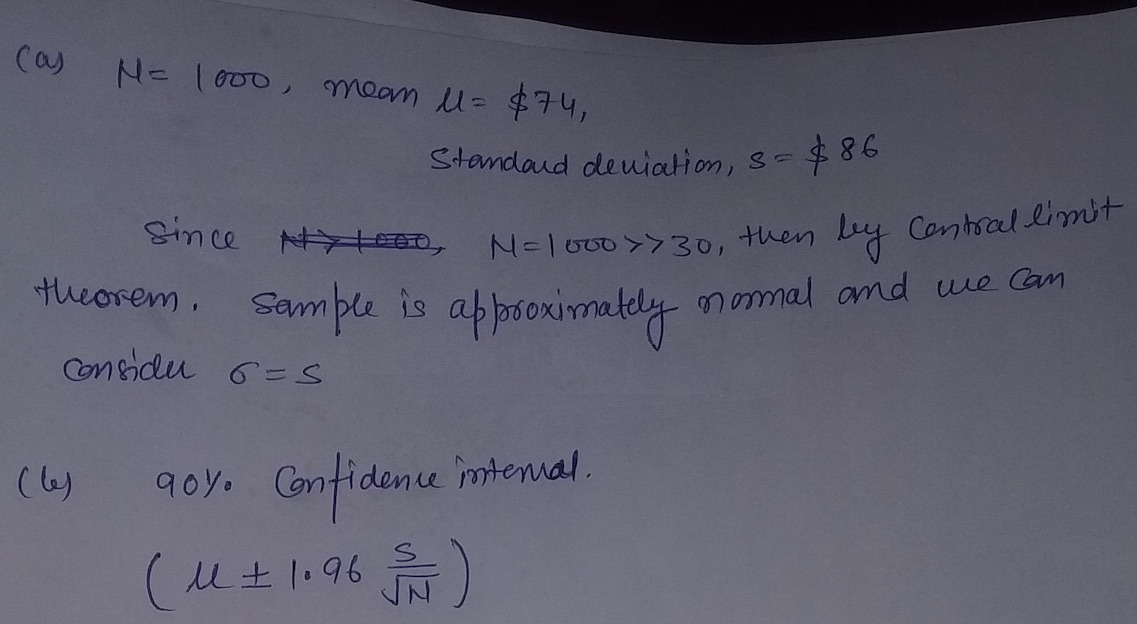 (a) N = 1000, mean μ = $74,
Standard deviation, s = $86
Since N > 1000, N = 1000 >> 30, then by Central limit
theorem. Sample is approximately normal and we can
consider σ = s
(b) 90% Confidence interval.
(μ ± 1.96 s/√N)